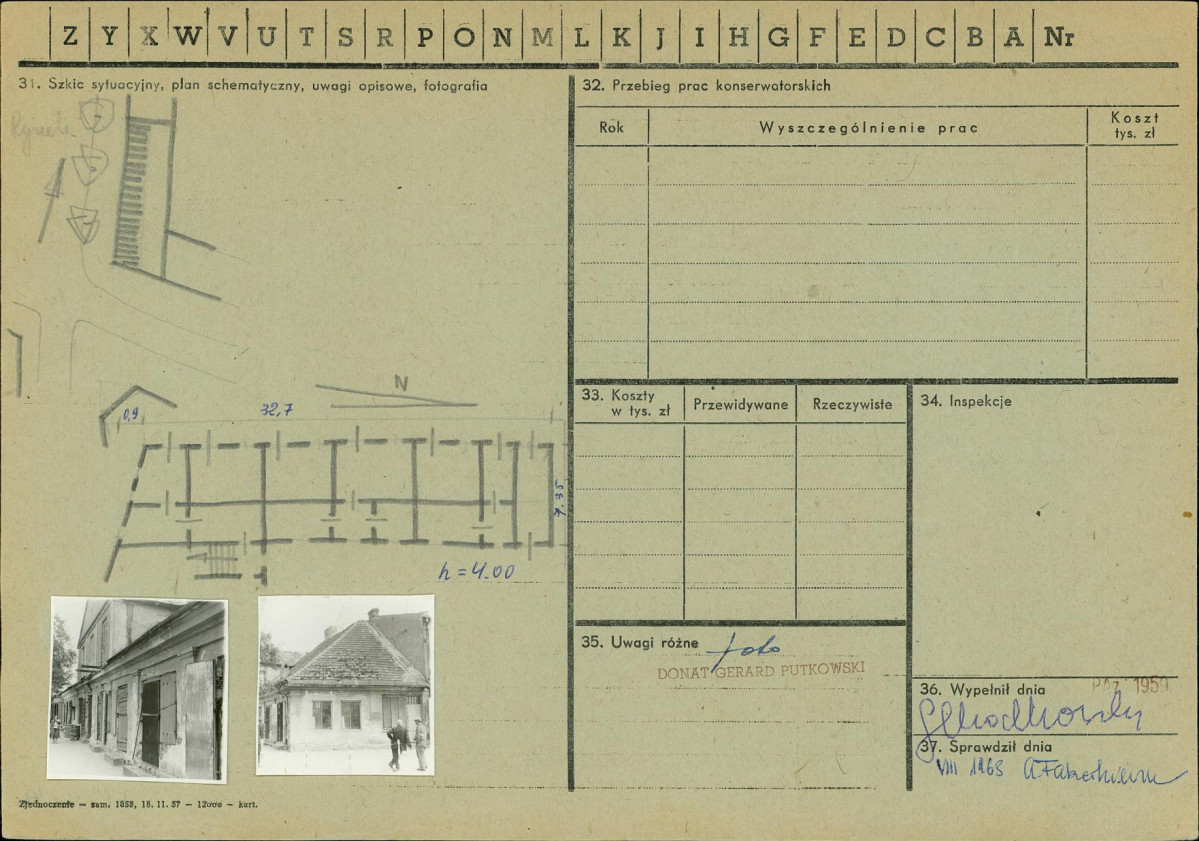 Z Y X W V U T S R P O N M L K J I H G F E D C B A Nr
31. Szkic sytuacyjny, plan schematyczny, uwagi opisowe, fotografia
N
0,9
32,7
7.35
h = 4.00
Zjednoczenie — zam. 1858, 18. 11. 57 — 12000 — kart.
32. Przebieg prac konserwatorskich
Rok
Wyszczególnienie prac
Koszt
tys. zł
33. Koszty
w tys. zł
Przewidywane
Rzeczywiste
34. Inspekcje
35. Uwagi różne
foto
DONAT GERARD PUTKOWSKI
36. Wypełnił dnia
PAŹ 1959
37. Sprawdził dnia
VIII 1963